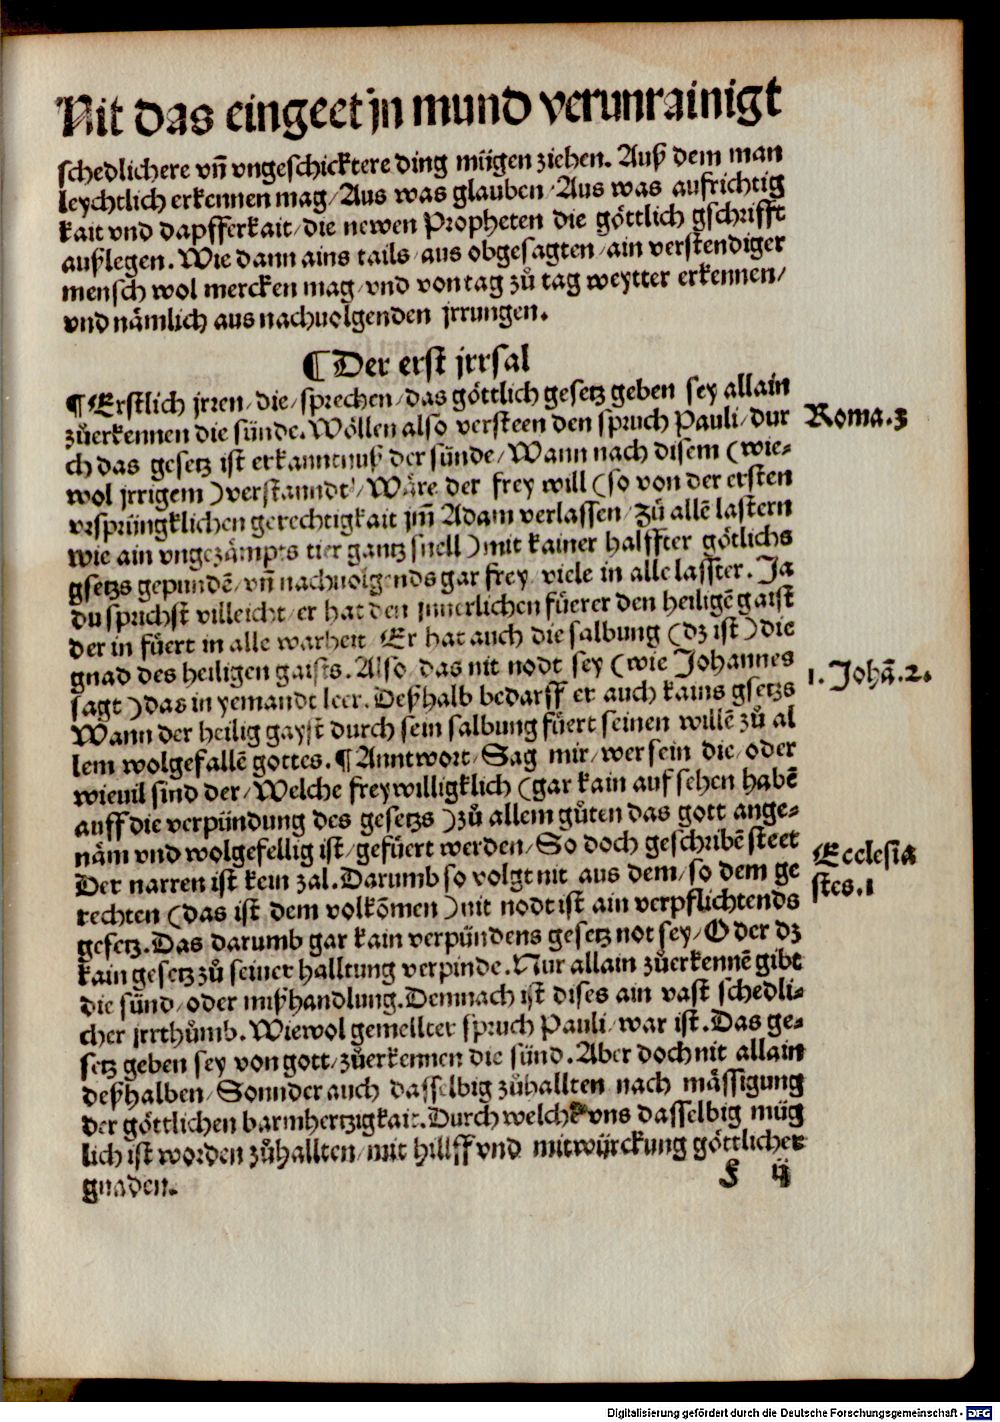 Nit das eingeet jn mund verunrainigt
schedlichere vnͫ vngeschicktere ding mügen ziehen. Auß dem man
leychtlich erkennen mag/Aus was glauben/Aus was aufrichtig
kait vnd dapfferkait/die newen Propheten die göttlich gschrifft
außlegen. Wie dann ains tails/aus obgesagten/ain verstendiger
mensch wol mercken mag/vnd von tag zů tag weytter erkennen/
vnd nämlich aus nachuolgenden jrrungen.
¶ Der erst jrrsal
¶ Erstlich jrren/die/sprechen/das göttlich gesetz geben sey allain
zůerkennen die sünde. Wöllen also versteen den spruch Pauli/dur
ch das gesetz ist erkanntnuß der sünde/Wann nach disem (wie-
wol jrrigem) verstanndt/Wäre der frey will (so von der ersten
vrsprüngklichen gerechtigkait jm̃ Adam verlassen/zů allē lastern
wie ain vngezämpts tier gantz snell) mit kainer halffter götlichs
gsetzs gepundē/vñ nachuolgends gar frey viele in alle lasster. Ja
du sprichst villeicht/er hat den jnnerlichen füerer den heiligē gaist
der in füert in alle warheit/Er hat auch die salbung (dz ist) die
gnad des heiligen gaists. Also/das nit nodt sey (wie Johannes
sagt) das in yemandt leer. Deßhalb bedarff er auch kains gsetzs
Wann der heilig gayst durch sein salbung füert seinen willē zů al
lem wolgefallē gottes. ¶ Anntwort/Sag mir/wer sein die/oder
wieuil sind der/Welche freywilligklich (gar kain auf sehen habē
auff die verpündung des gesetzs) zů allem gůten das gott ange-
näm vnd wolgefellig ist/gefüert werden/So doch geschribē steet
Der narren ist kein zal. Darumb so volgt nit aus dem/so dem ge
rechten (das ist dem volkōmen) nit nodt ist ain verpflichtends
gesetz. Das darumb gar kain verpündens gesetz not sey/Oder dz
kain gesetz zů seiner halltung verpinde. Nur allain zůerkennē gibt
die sünd/oder mißhandlung. Demnach ist dises ain vast schedli-
cher jrrthůmb. Wiewol gemellter spruch Pauli/war ist. Das ge-
setz geben sey von gott/zůerkennen die sünd. Aber doch nit allain
deßhalben/Sonnder auch dasselbig zůhallten nach mässigung
der göttlichen barmhertzigkait. Durch welche vns dasselbig müg
lich ist worden zůhallten/mit hillff vnd mitwürckung göttlicher
gnaden.
Roma.3
1. Johā.2.
Ecclesia
stes.1
f ij
Digitalisierung gefördert durch die Deutsche Forschungsgemeinschaft - DFG